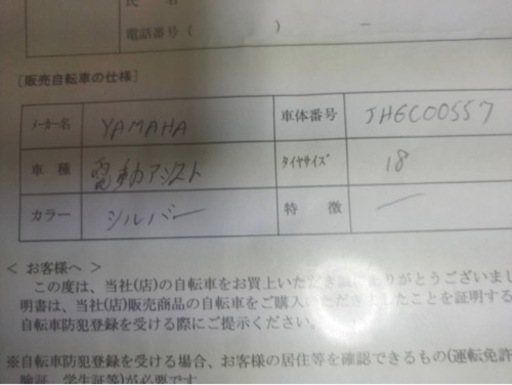 氏名
電話番号（　　　　）　　－
[販売自転車の仕様]
メーカー名 YAMAHA 車体番号 JH6C00557
車種 電動アシスト タイヤサイズ 18
カラー シルバー 特徴 ―
＜ お客様へ ＞
この度は、当社(店)の自転車をお買上いただき誠にありがとうございまし
明書は、当社(店)販売商品の自転車をご購入いただきましたことを証明する
自転車防犯登録を受ける際にご提示ください。
※自転車防犯登録を受ける場合、お客様の居住等を確認できるもの(運転免許
険証、学生証等)が必要です